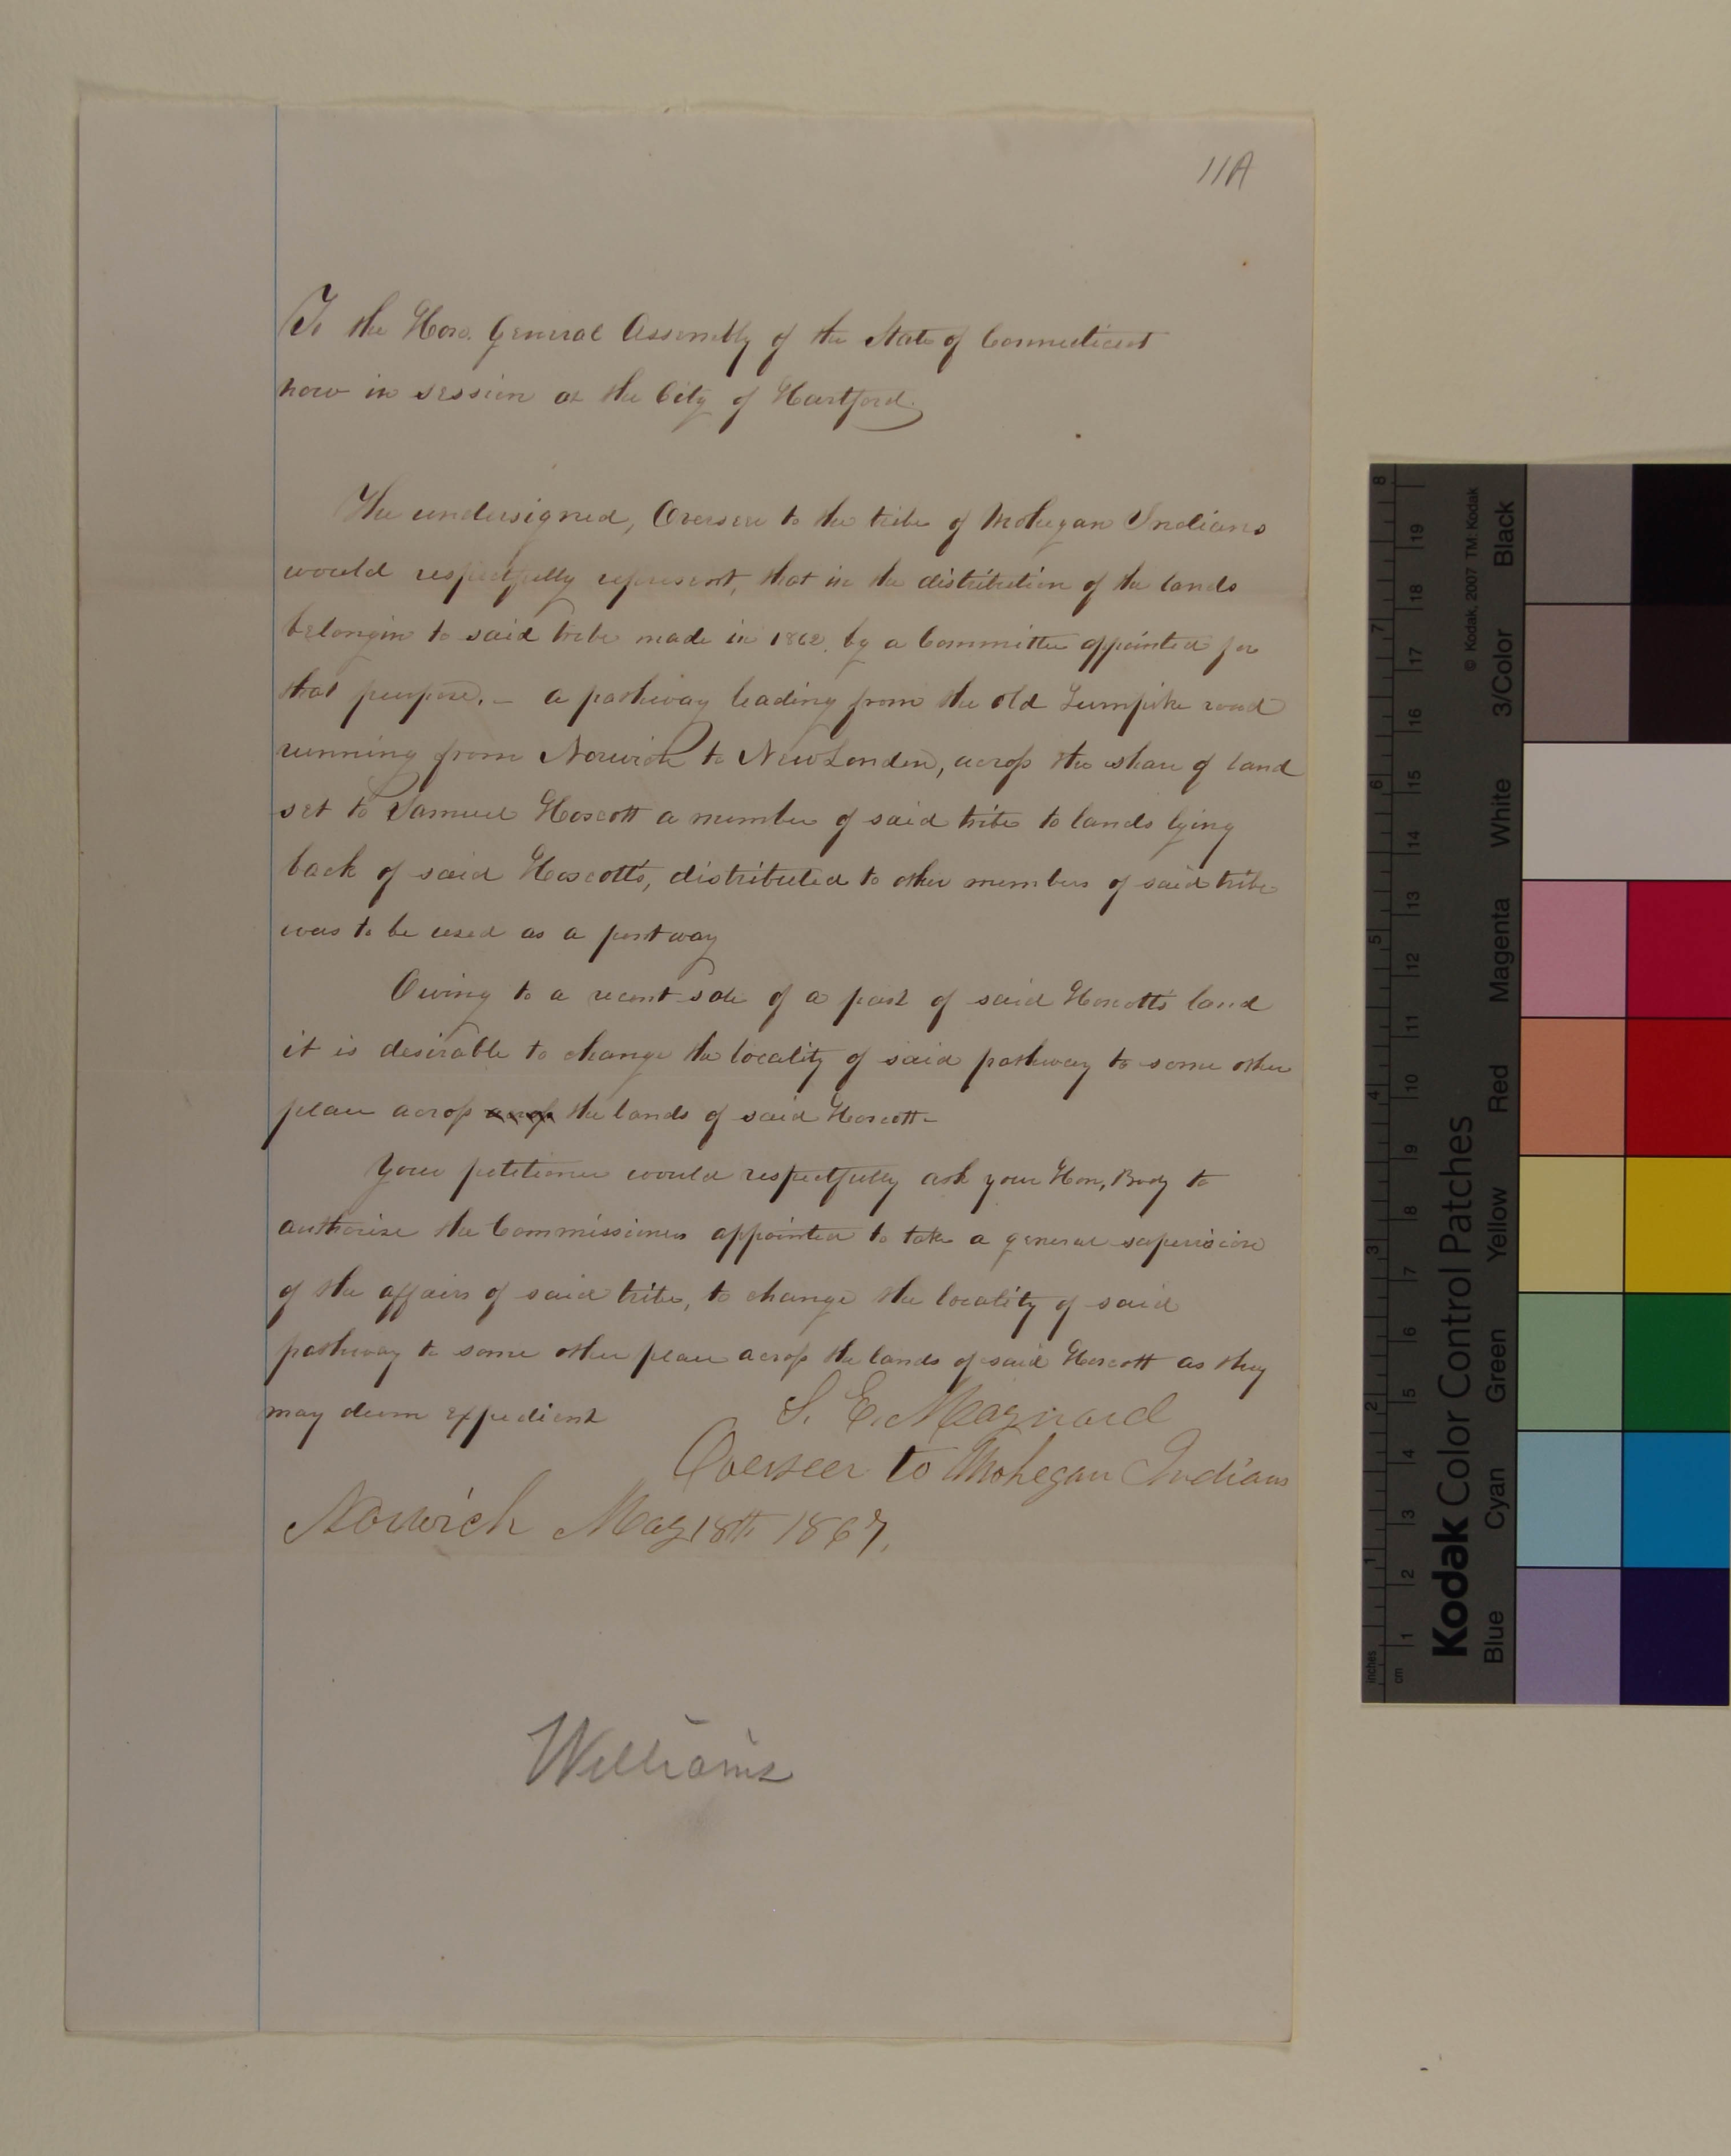 11A
To the Hon. General Assembly of the State of Connecticut
now in session at the City of Hartford.
The undersigned, Overseer to the tribe of Mohegan Indians
would respectfully represent, that in the distribution of the lands
belongin to said tribe made in 1862. by a Committee appointed for
that purpose. – a pathway leading from the old Turnpike road
running from Norwich to New London, across the share of land
set to Samuel Hoscott a member of said tribe to lands lying
back of said Hoscott's, distributed to other members of said tribe
was to be used as a pentway
Owing to a recent sale of a part of said Hoscott's land
it is desirable to change the locality of said pathway to some other
place across across the lands of said Hoscott–
Your petitioner would respectfully ask your Hon, Body to
authorise the Commissioners appointed to take a general supervision
of the affairs of said tribe, to change the locality of said
pathway to some other place across the lands of said Hoscott as they
may deem expedient
S. E. Maynard
Overseer to Mohegan Indians
Norwich May 18th 1867.
Williams
inches
cm
1 2 3 4 5 6 7 8
1 2 3 4 5 6 7 8 9 10 11 12 13 14 15 16 17 18 19
Kodak Color Control Patches
© Kodak, 2007 TM: Kodak
Blue Cyan Green Yellow Red Magenta White 3/Color Black